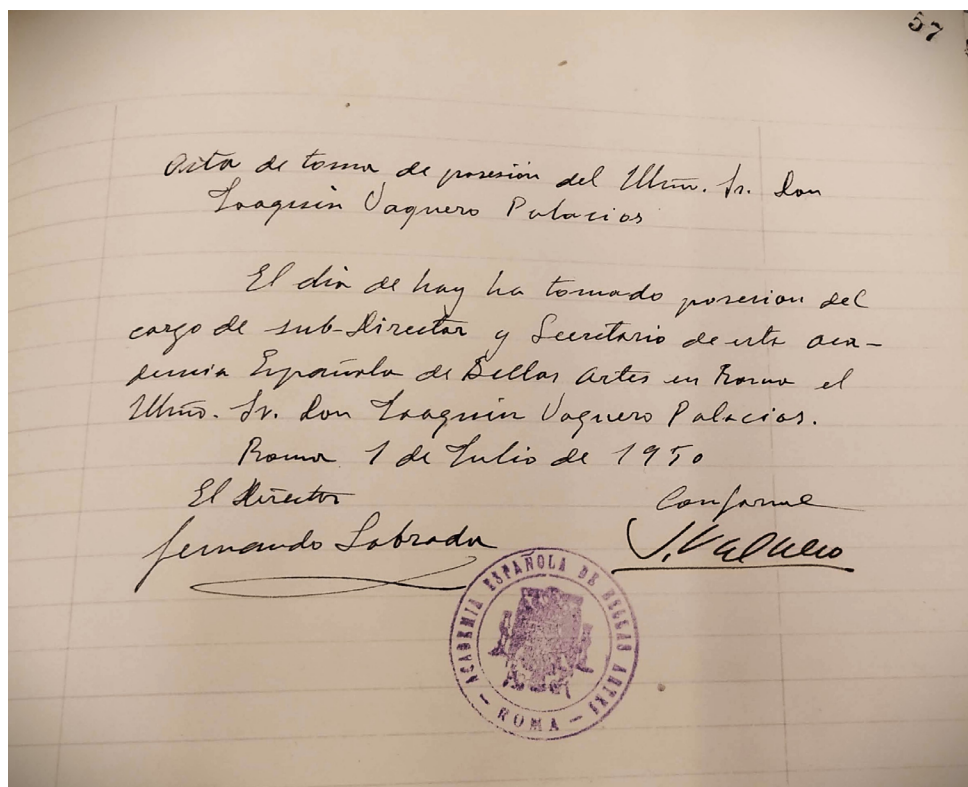 57
Acta de toma de posesión del Ilmo. Sr. Don
Joaquin Vaquero Palacios
El dia de hay ha tomado posesion del
cargo de sub-Director y Secretario de esta Aca-
demia Española de Bellas Artes en Roma el
Ilmo. Sr. Don Joaquin Vaquero Palacios.
Roma 1 de Julio de 1950
El Director
Conforme
Fernando Labrada
J. Vaquero
ACADEMIA ESPAÑOLA DE BELLAS ARTES
— ROMA —